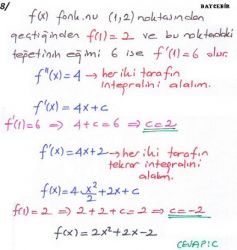 8/ BAYCEBİR
f(x) fonk.nu (1,2) noktasından
geçtiğinden f(1)=2 ve bu noktadaki
teğetinin eğimi 6 ise f'(1)=6 olur.
f''(x)=4 → her iki tarafın
integralini alalım.
f'(x)=4x+c
f'(1)=6 ⇒ 4+c=6 ⇒ c=2
f'(x)=4x+2 → her iki tarafın
tekrar integralini
alalım.
f(x)=4 x²/2 +2x+c
f(1)=2 ⇒ 2+2+c=2 ⇒ c=-2
f(x)=2x²+2x-2
CEVAP C